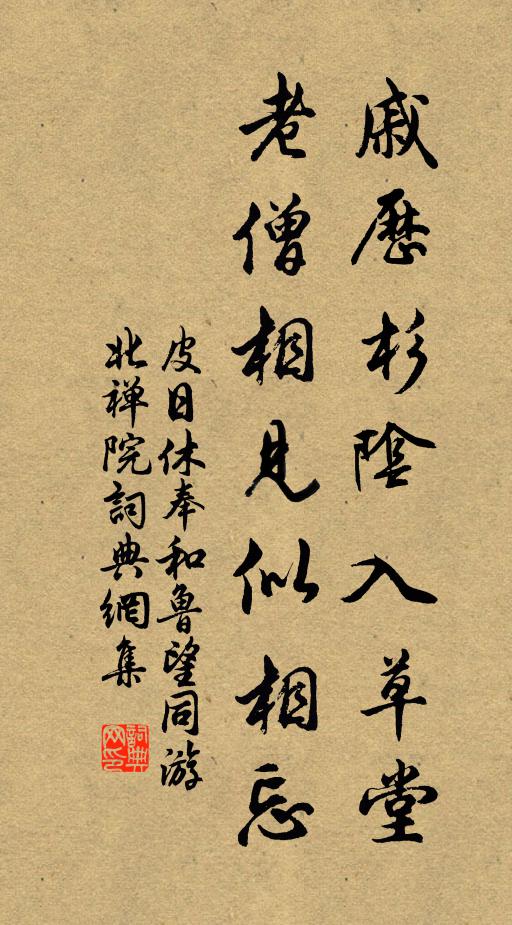 戚歷杉陰入草堂
老僧相見似相忘
皮日休奉和魯望同游
北禅院詞典網集
詞典網印